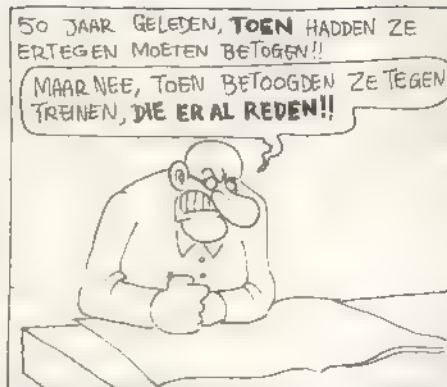 50 JAAR GELEDEN, TOEN HADDEN ZE
ERTEGEN MOETEN BETOGEN!!
MAAR NEE, TOEN BETOOGDEN ZE TEGEN
TREINEN, DIE ER AL REDEN!!